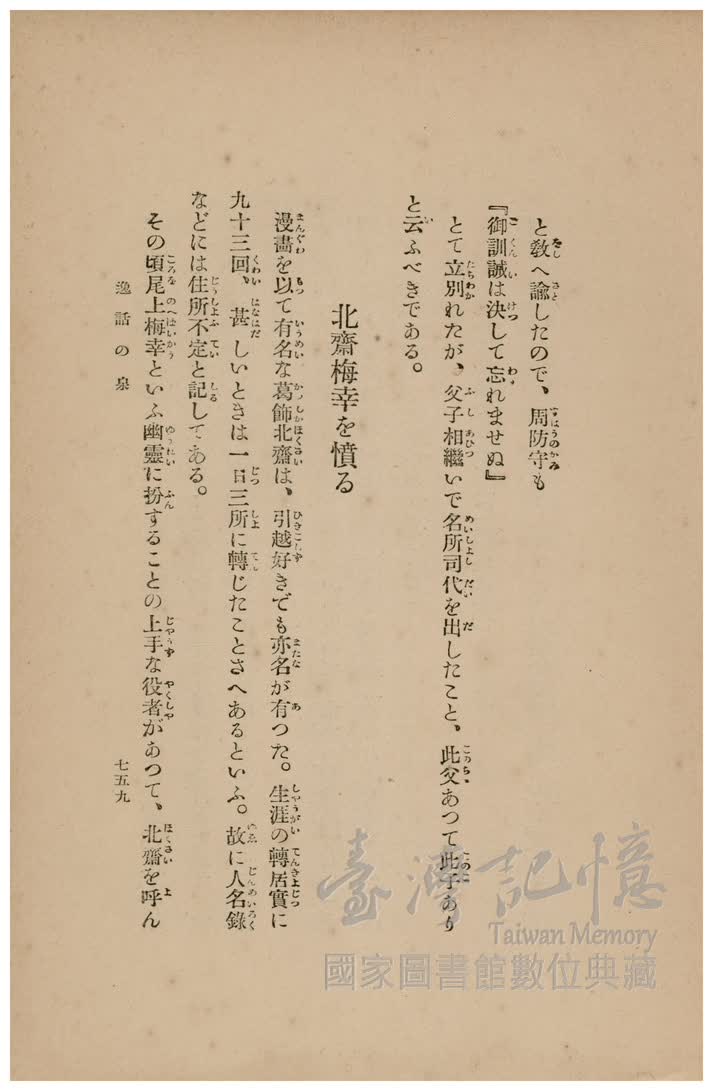 と敎へ諭したので、周防守も
『御訓誡は決して忘れませぬ』
とて立別れたが、父子相繼いで名所司代を出したこと、此父あつて此子あり
と云ふべきである。
北齋梅幸を憤る
漫畫を以て有名な葛飾北齋は、引越好きでも亦名が有つた。生涯の轉居實に
九十三回、甚しいときは一日三所に轉じたことさへあるといふ。故に人名錄
などには住所不定と記してある。
その頃尾上梅幸といふ幽靈に扮することの上手な役者があつて、北齋を呼ん
逸話の泉
七五九
臺灣記憶
Taiwan Memory
國家圖書館數位典藏